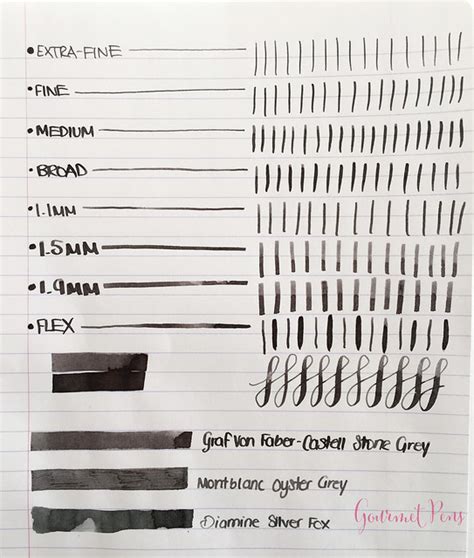 EXTRA-FINE
FINE
MEDIUM
BROAD
1.1MM
1.5MM
1.9MM
FLEX
Graf Von Faber-Castell Stone Grey
Montblanc Oyster Grey
Diamine Silver Fox
Gourmet Pens